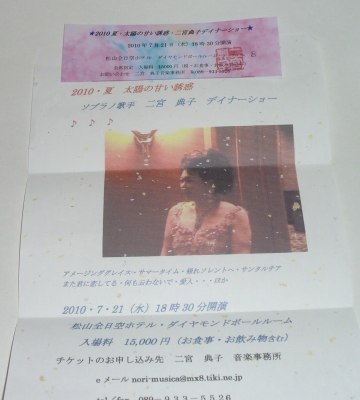 ★2010夏・太陽の甘い誘惑・二宮典子デイナーショー★
2010年7月21日（水）18時30分開演
松山全日空ホテル ダイヤモンドボールルーム
2010・夏 太陽の甘い誘惑
ソプラノ歌手 二宮 典子 デイナーショー
♪ ♪ ♪
アメージンググレイス・サマータイム・帰れソレントへ・サンタルチア
また君に恋してる・何も云わないで・愛人・・・ほか
2010・7・21（水）18時30分開演
松山全日空ホテル・ダイヤモンドボールルーム
入場料 15,000円（お食事・お飲み物含む）
チケットのお申し込み先 二宮 典子 音楽事務所
eメール nori-musica@mx8.tiki.ne.jp
tel/fax 089-933-5526